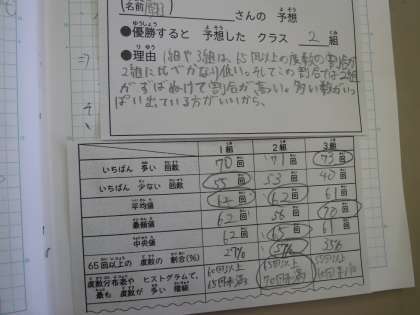 (名前)
さんの 予想
●優勝すると 予想した クラス 2 組
●理由 1組や3組は、65回以上の度数の割合が
2組に比べかなり低い。そしてこの割合では2組
がずばぬけて割合が高い。多い数がいっ
ぱい出ている方がいいから、
1組 2組 3組
いちばん 多い 回数 70回 71回 73回
いちばん 少ない 回数 55回 53回 40回
平均値 62回 62回 61回
最頻値 62 56 70回
中央値 62回 65回 61回
65回以上の 度数の 割合(%) 27% 57% 35%
度数分布表や ヒストグラムで、
最も 度数が 多い 階級
60回以上 65回未満
65回以上 70回未満